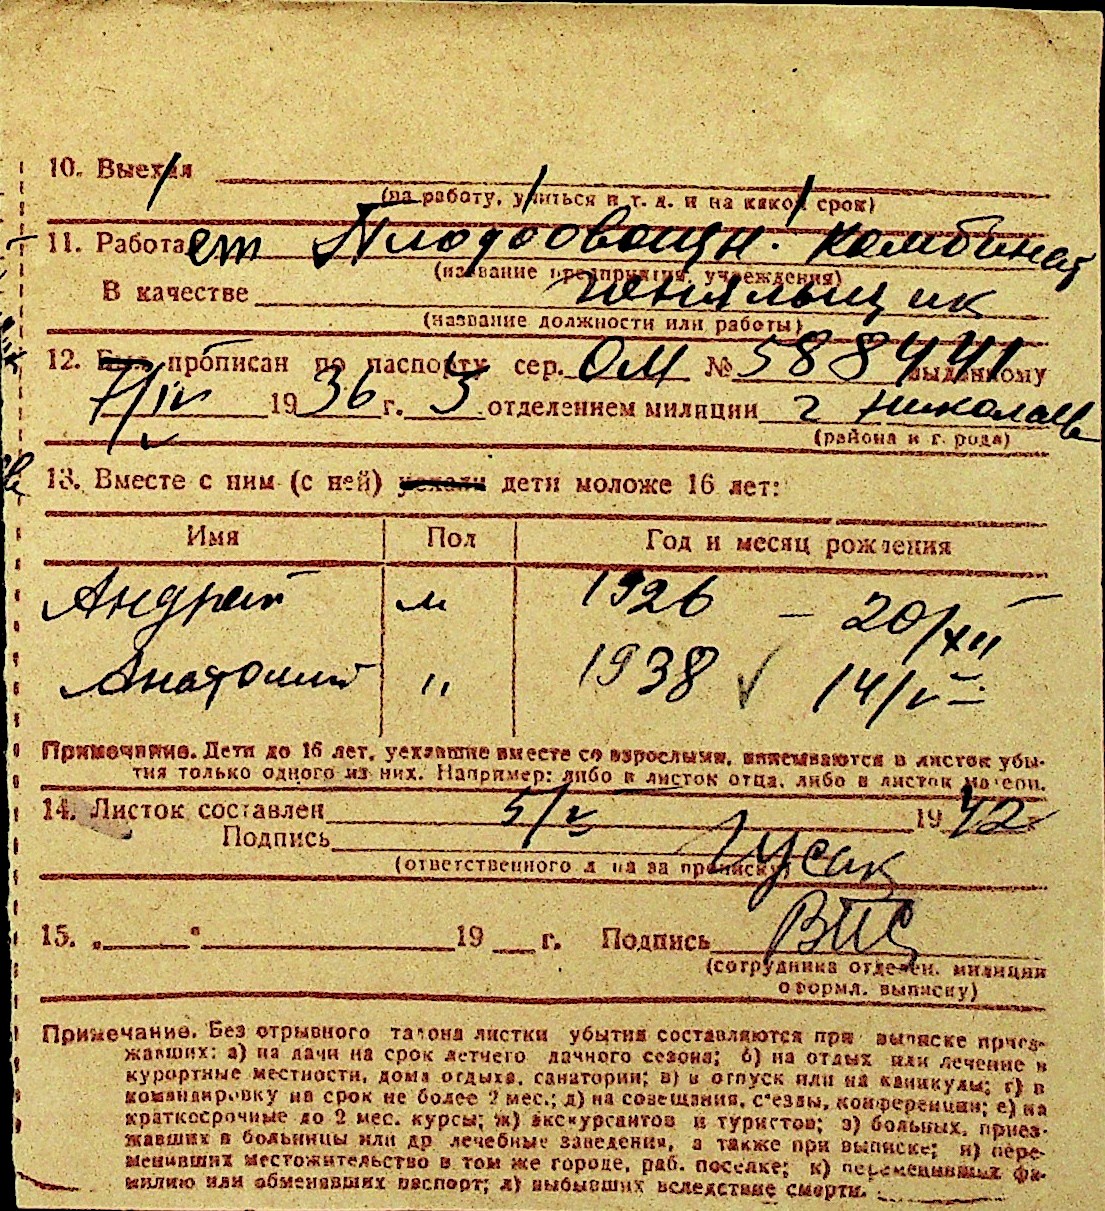 10. Выехал
(на работу, учиться и т. д. и на какой срок)
11. Работает Плодоовощн. комбинат
(название предприятия, учреждения)
В качестве
(название должности или работы)
12. Был прописан по паспорту сер. ОМ № 588441 выданному
7/IV 1936 г. 3 отделением милиции г Николаев
(района и города)
13. Вместе с ним (с ней) уехали дети моложе 16 лет:
Имя Пол Год и месяц рождения
Андрей м 1926 – 20/XII
Анатолий " 1938 14/V
Примечание. Дети до 16 лет, уехавшие вместе со взрослыми, вписываются в листок убы-
тия только одного из них. Например: либо в листок отца, либо в листок матери.
14. Листок составлен 5/V 1942 г.
Подпись Гусак
(ответственного лица за прописку)
15. „ " 19 г. Подпись
(сотрудника отделен. милиции
оформл. выписку)
Примечание. Без отрывного талона листки убытия составляются при выписке приез-
жавших: а) на дачи на срок летнего дачного сезона; б) на отдых или лечение в
курортные местности, дома отдыха, санатории; в) в отпуск или на каникулы; г) в
командировку на срок не более 2 мес.; д) на совещания, съезды, конференции; е) на
краткосрочные до 2 мес. курсы; ж) экскурсантов и туристов; з) больных, приез-
жавших в больницы или др лечебные заведения, а также при выписке; и) пере-
менивших местожительство в том же городе, раб. поселке; к) переменивших фа-
милию или обменявших паспорт; л) выбывших вследствие смерти.